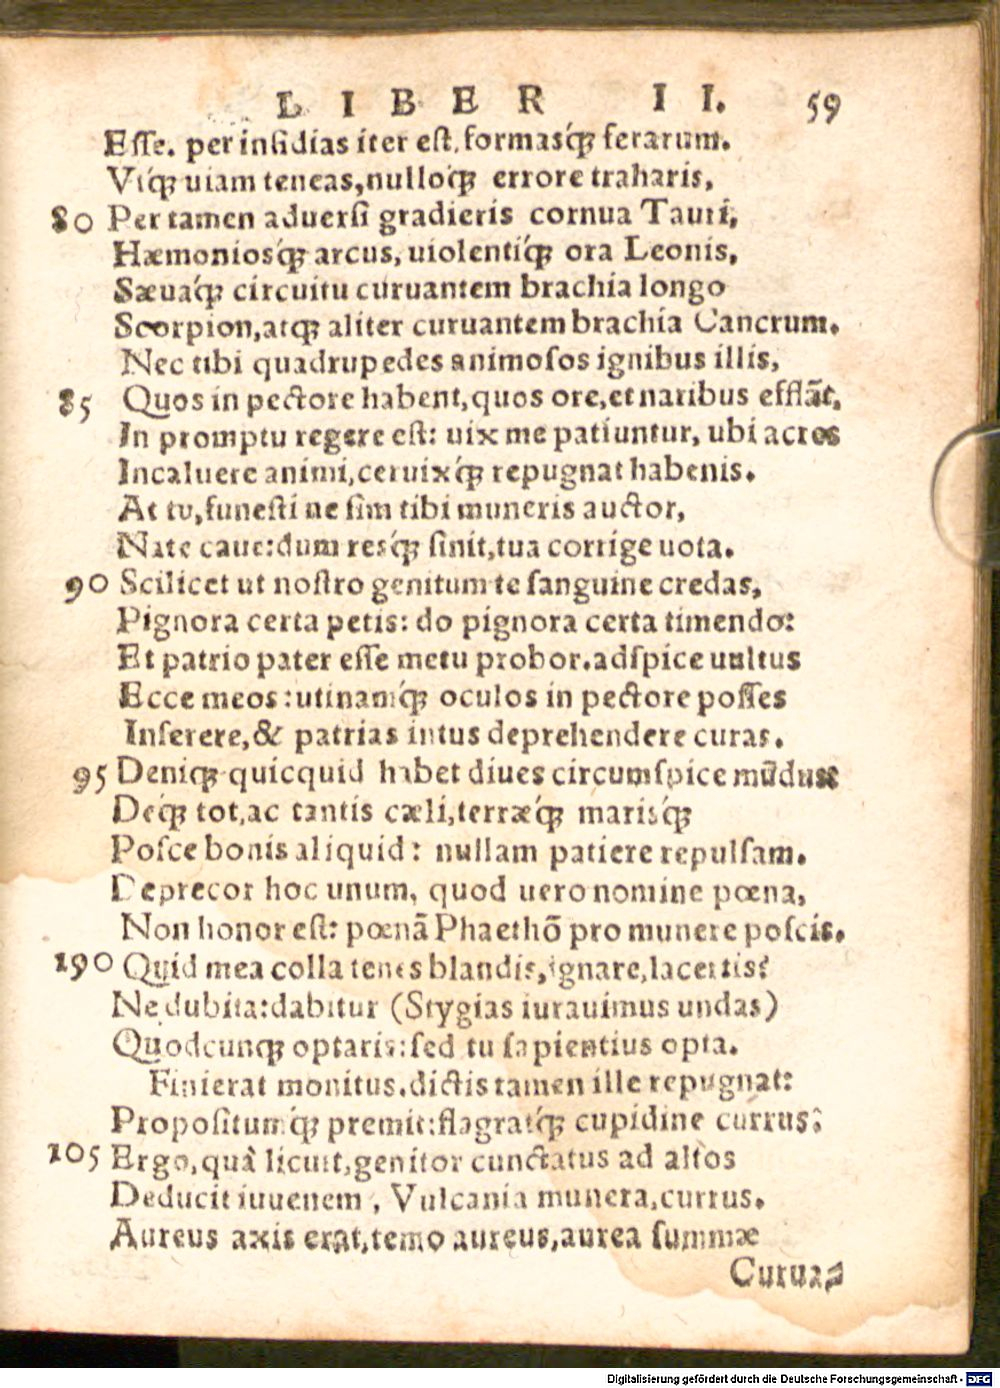 LIBER II. 59
Esse. per insidias iter est, formasq́ꝫ ferarum.
Vtq́ꝫ uiam teneas, nulloq́ꝫ errore traharis,
80 Per tamen aduersi gradieris cornua Tauri,
Hæmoniosq́ꝫ arcus, uiolentiq́ꝫ ora Leonis,
Sæuaq́ꝫ circuitu curuantem brachia longo
Scorpion, atqꝫ aliter curuantem brachia Cancrum.
Nec tibi quadrupedes animosos ignibus illis,
85 Quos in pectore habent, quos ore, et naribus efflāt,
In promptu regere est: uix me patiuntur, ubi acres
Incaluere animi, ceruixq́ꝫ repugnat habenis.
At tu, funesti ne sim tibi muneris auctor,
Nate caue: dum resq́ꝫ sinit, tua corrige uota.
90 Scilicet ut nostro genitum te sanguine credas,
Pignora certa petis: do pignora certa timendo:
Et patrio pater esse metu probor. adspice uultus
Ecce meos: utinamq́ꝫ oculos in pectore posses
Inserere, & patrias intus deprehendere curas.
95 Deniqꝫ quicquid habet diues circumspice mūdus:
Deq́ꝫ tot, ac tantis cæli, terræq́ꝫ marisq́ꝫ
Posce bonis aliquid: nullam patiere repulsam.
Deprecor hoc unum, quod uero nomine pœna,
Non honor est: pœnā Phaethō pro munere poscis.
190 Quid mea colla tenes blandis, ignare, lacertis?
Ne dubita: dabitur (Stygias iurauimus undas)
Quodcunqꝫ optaris: sed tu sapientius opta.
Finierat monitus. dictis tamen ille repugnat:
Propositumq́ꝫ premit: flagratq́ꝫ cupidine currus:
105 Ergo, quâ licuit, genitor cunctatus ad altos
Deducit iuuenem, Vulcania munera, currus.
Aureus axis erat, temo aureus, aurea summæ
Curua-
Digitalisierung gefördert durch die Deutsche Forschungsgemeinschaft - DFG